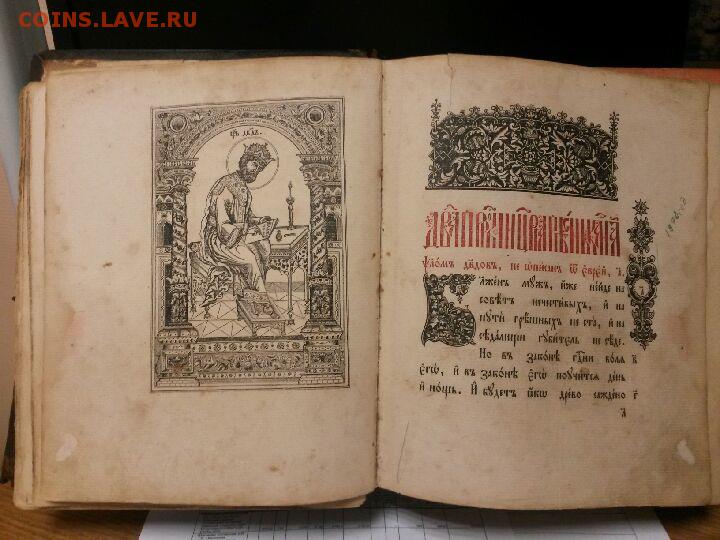 COINS.LAVE.RU
цр҃ь дв҃дъ.
ѱалом дв҃довъ, не ѡписан ѿ еврей, а҃.
Блажен мꙋж, иже не иде на
совѣт нечестивых, и на
пꙋти грѣшных не ста, и на
сѣдалищи гꙋбитель не сѣде.
Но въ законѣ гдн҃и воля в҃
егѡ, и въ законѣ егѡ поꙋчится день
и нощь. И бꙋдет ꙗкѡ древо саждено г҃
а҃